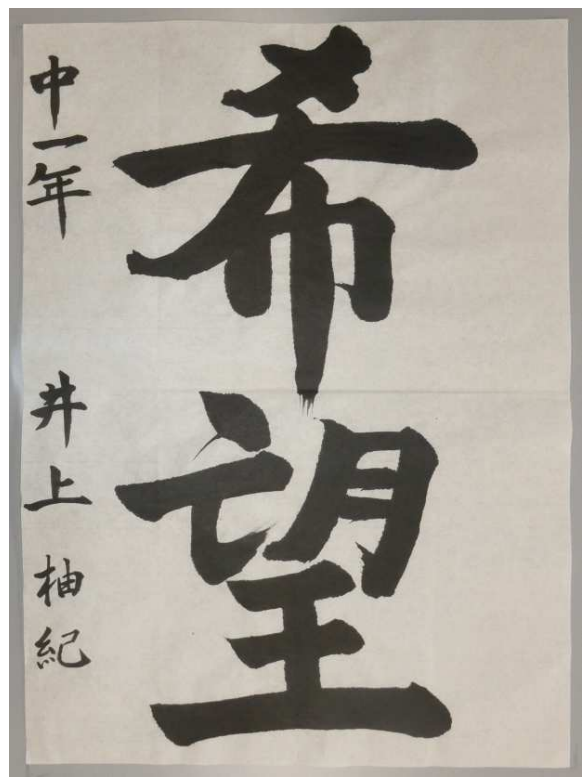 希望
中一年 井上柚紀